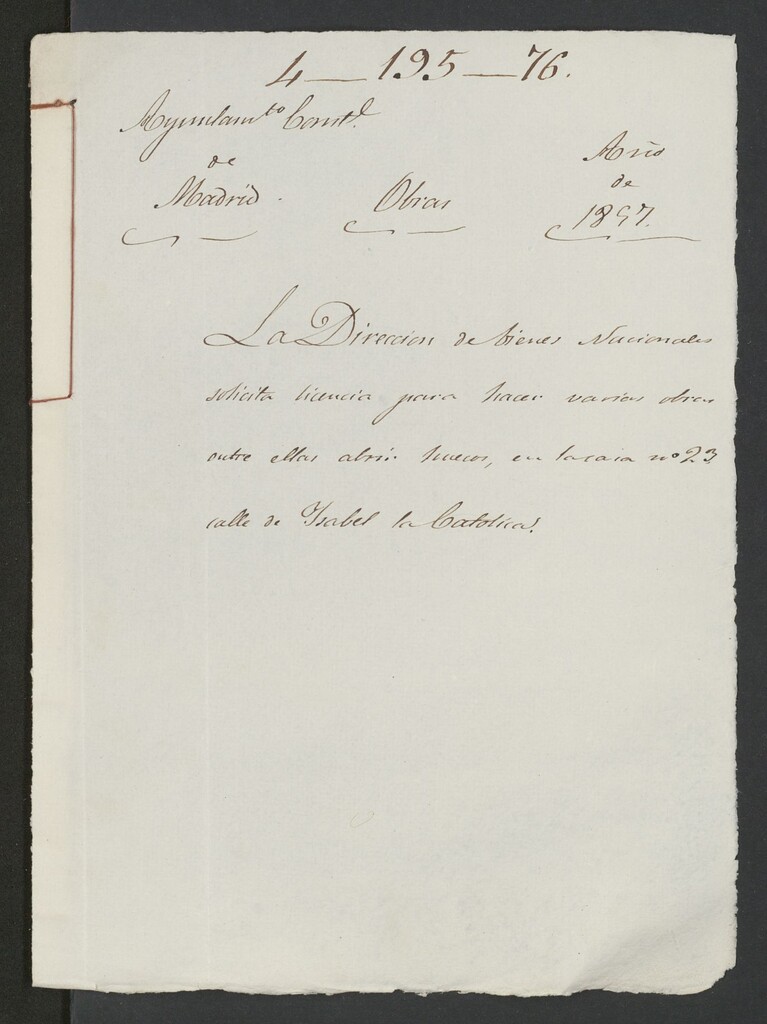 4 — 195 — 76.
Ayuntam.to Const.l
de
Madrid.
Obras
Año
de
1857.
La Direccion de bienes Nacionales
solicita licencia para hacer varias obras
entre ellas abrir huecos, en la casa nº 23
calle de Ysabel la Catolica.